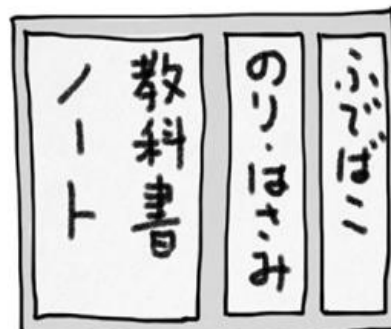 ふでばこ
のり・はさみ
教科書
ノート